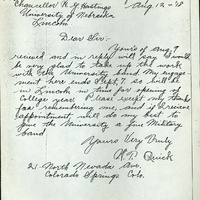 Aug 12 - '98
Chancellor R. G. Hastings
University of Nebraska
Lincoln
Dear Sir:-
Yours of Aug. 9
received and in reply will say I would
be very glad to take up the work
with the University band. My engage-
ment here ends Sept. 7. I will be
in Lincoln in time for opening of
College year. Please accept my thanks
for remembering me, and if I receive
appointment, will do my best to
give the University a fine Military
band.
Yours Very Truly
Quick
21 - North Nevada Ave
Colorado Springs Colo.